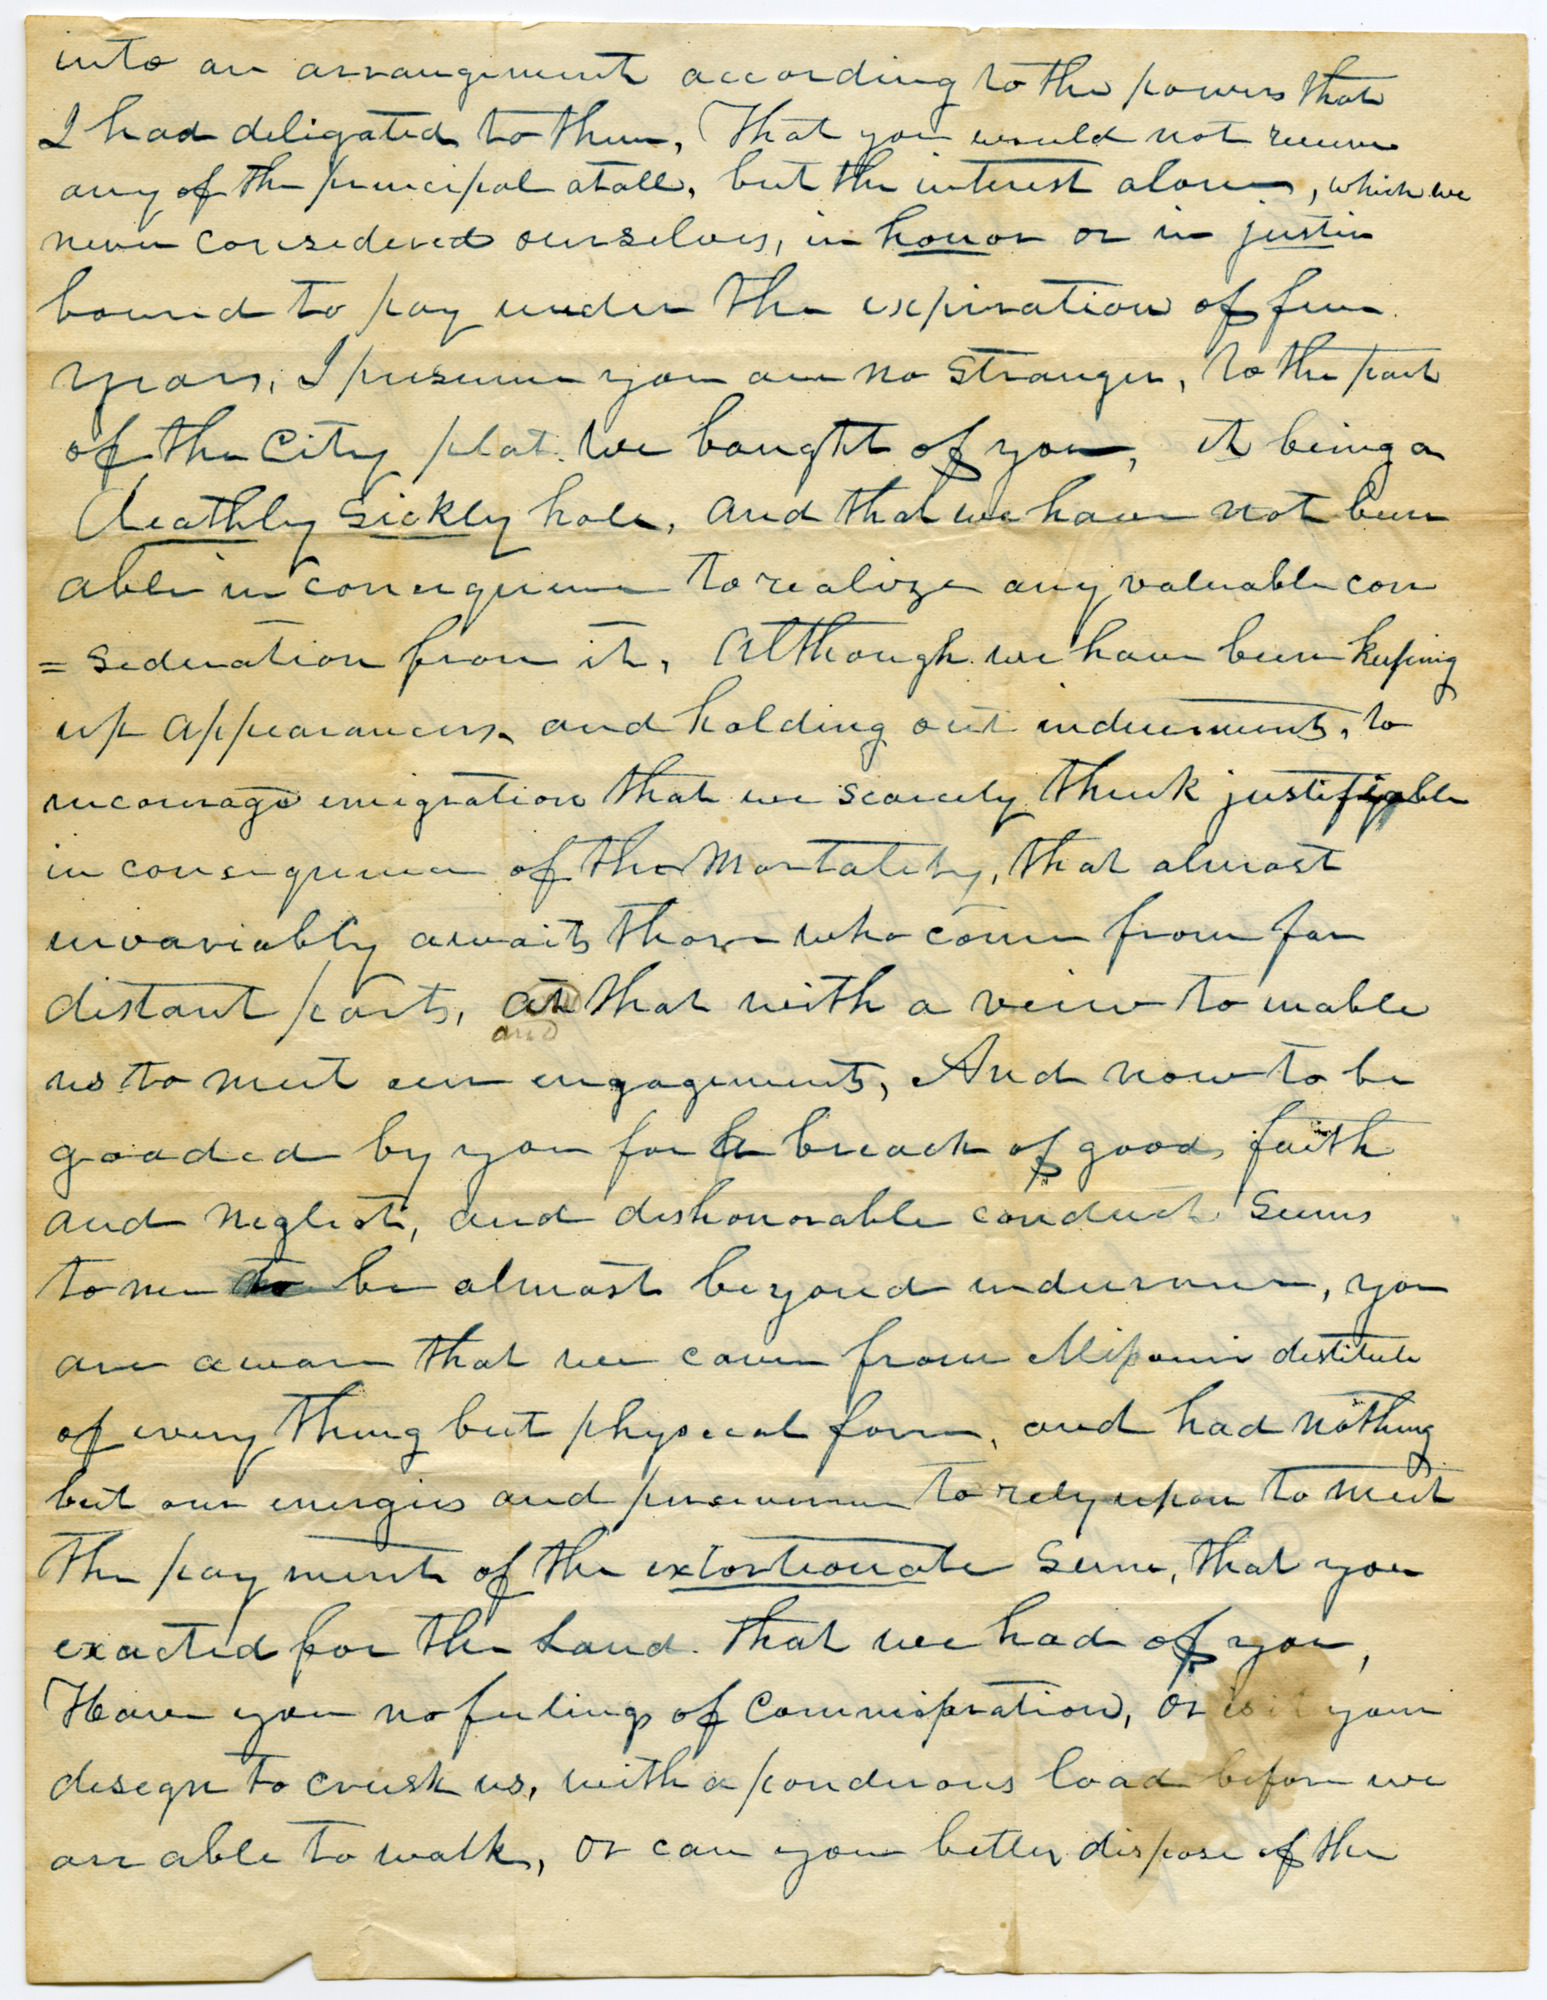 into an arrangement according to the powers that
I had deligated to them, That you would not receive
any of the principal atall, but the interest alone, which we
never considered ourselves, in honor or in justice
bound to pay under the expiration of five
years, I presume you are no stranger, to the part
of the City plat. We bought of you, it being a
deathly sickly hole, and that we have not been
able in consequence to realize any valuable con
= sideration from it, Although we have been keeping
up appearances, and holding out inducements, to
incourage emigration that we scarcely think justifiable
in consequence of the Mortality, that almost
invariably awaits those who come from far
distant parts, at that with a veiw to enable
and
us to meet our engagements, And now to be
goaded by you for a breach of good faith
and neglect, and dishonorable conduct seems
to me to be almost beyond indurance, you
are aware that we came from Missouri destitute
of every thing but physical force, and had nothing
but our energies and perseverance to rely upon to meet
the payment of the extortionate sum, that you
exacted for the Land. that we had of you,
Have you no feelings of Commispration, or is it your
design to crush us, with a ponderous load before we
are able to walk, or can you better dispose of the